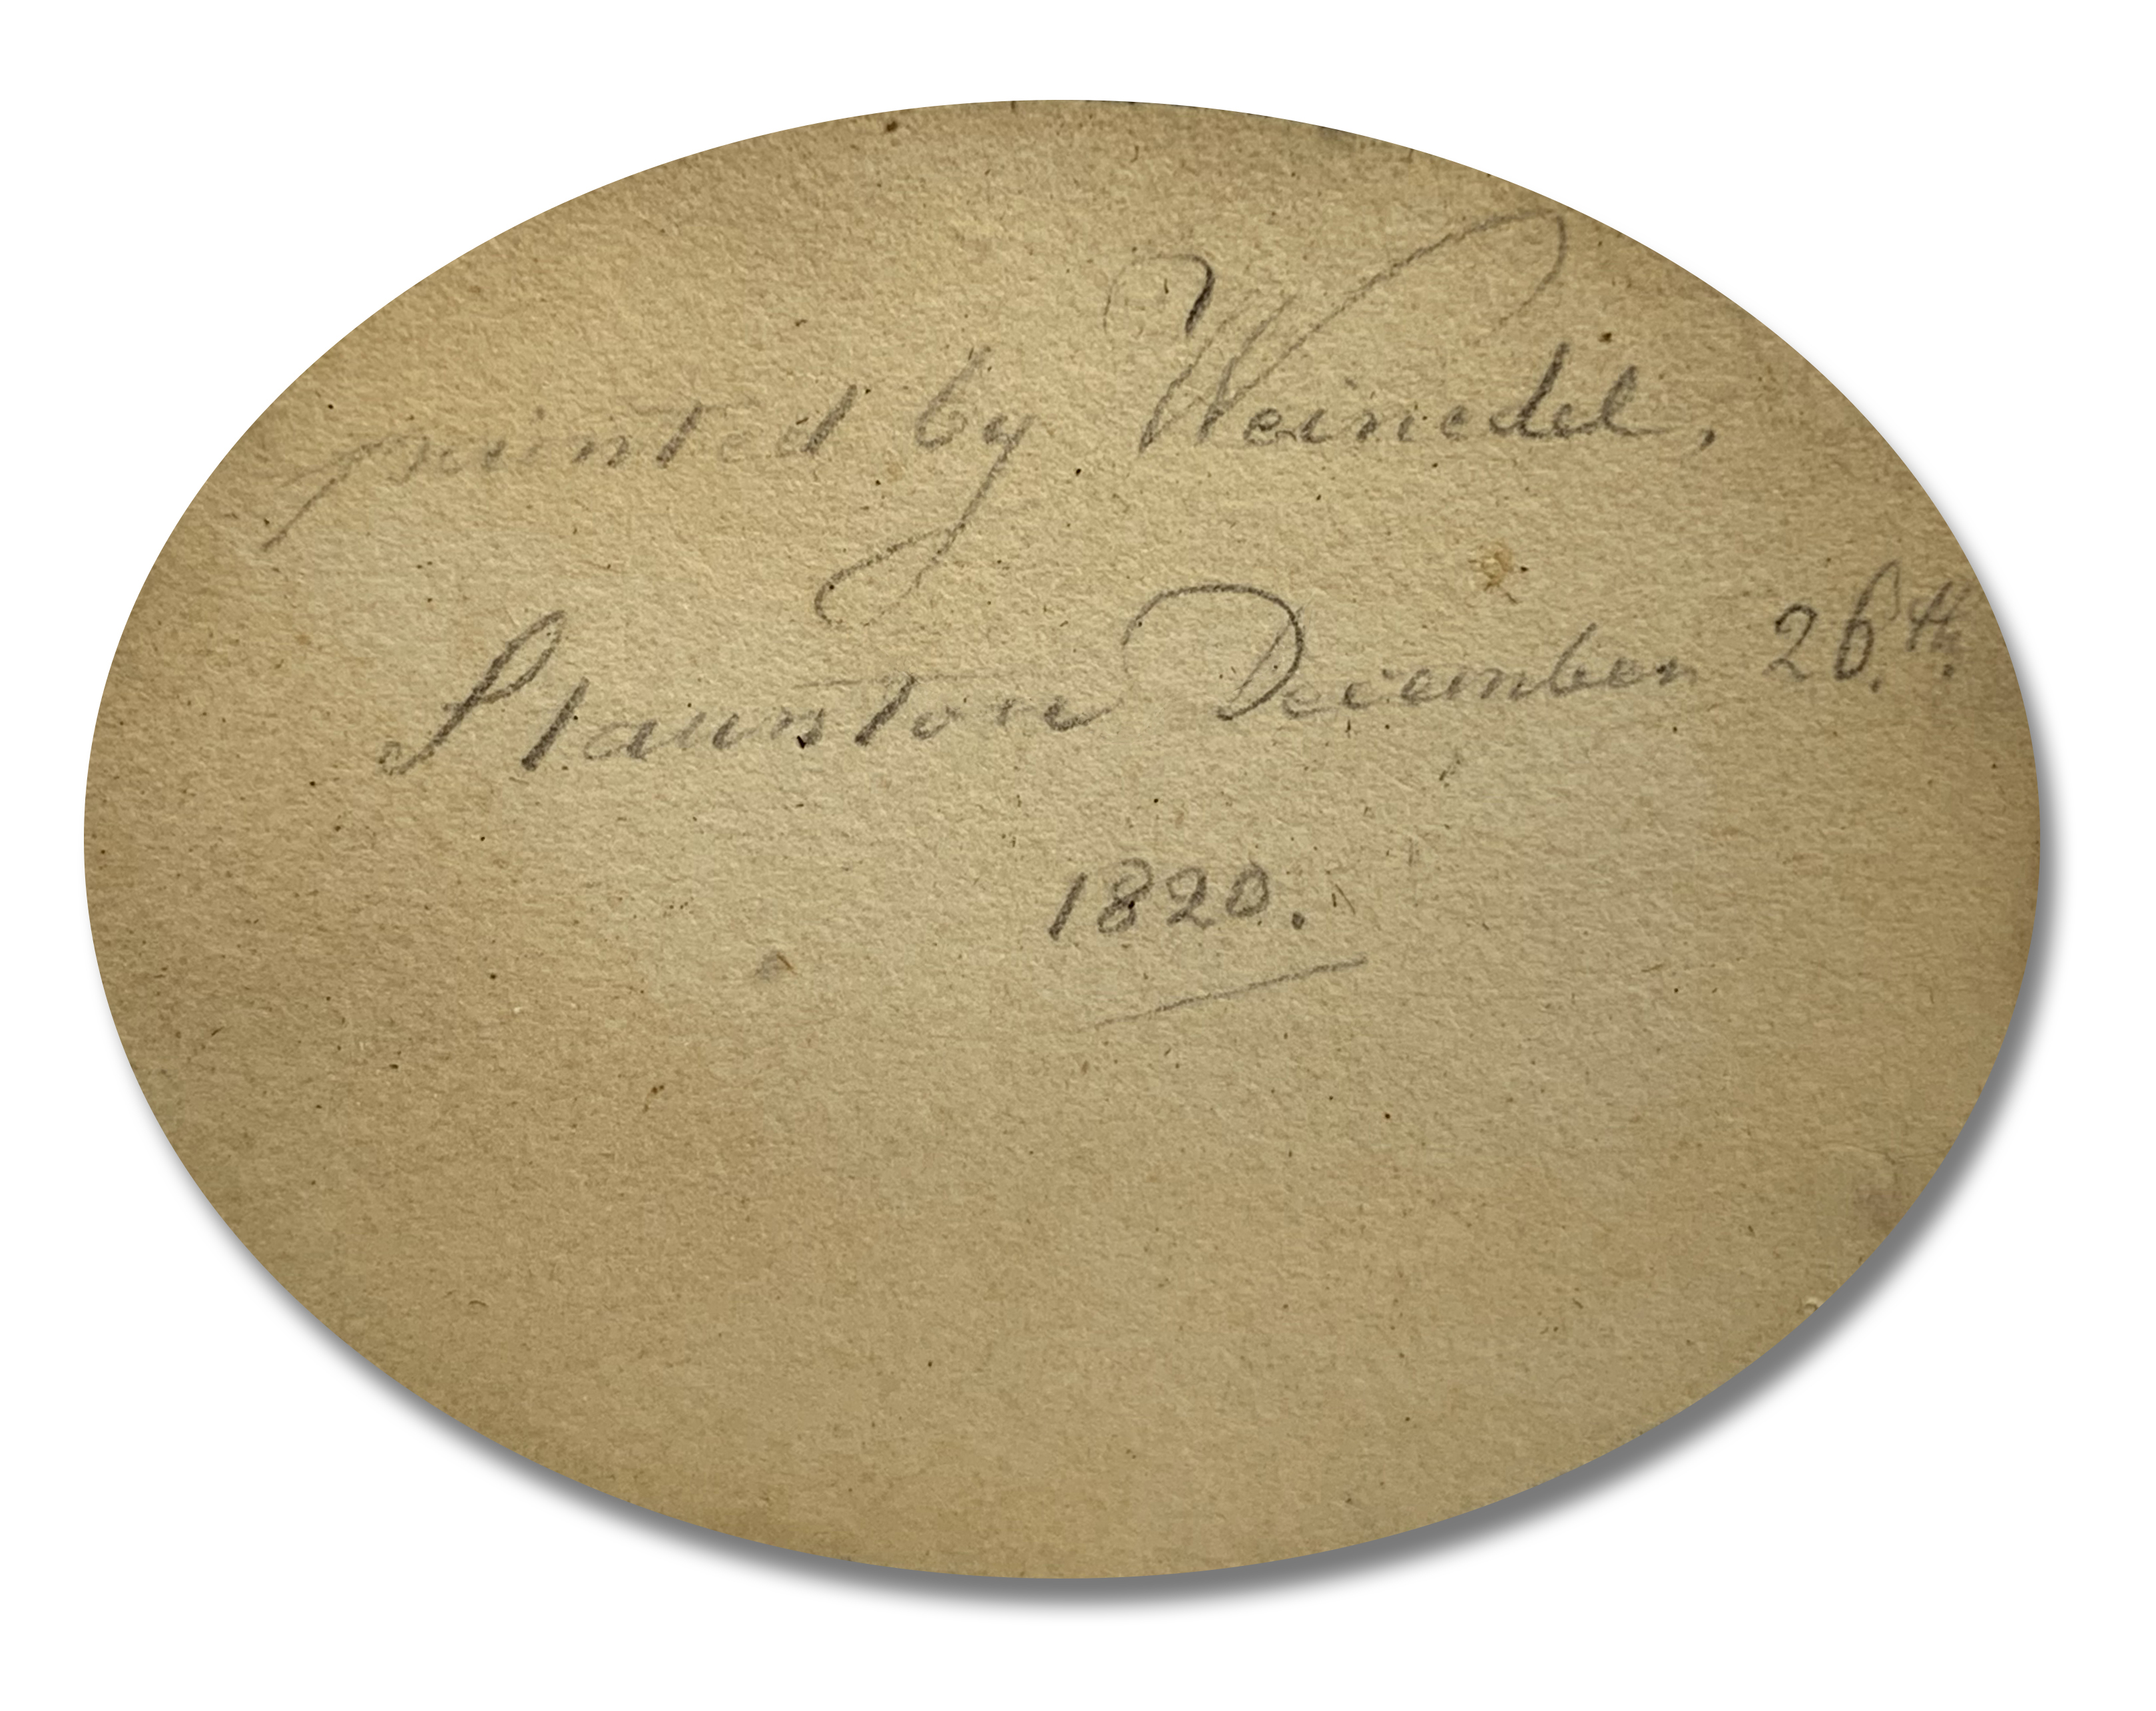 painted by Weinedel,
Staunton December 26.th.
1820.